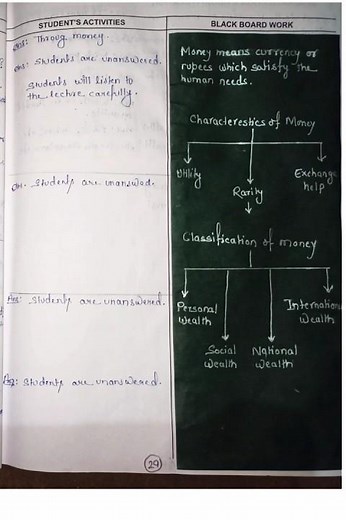 STUDENT'S ACTIVITIES
Ans: Throug money.
Ans: Students are unanswered.
Students will listen to
the lecture carefully.
Ans. Students are unanswod.
Ans: Students are unanswered.
Ans: Students are unanswered.
29
BLACK BOARD WORK
Money means currency or
rupees which satisfy the
human needs.
Characterestics of Money
Utility
Rarity
Exchange
help
Classification of money
Personal
Wealth
Social
Wealth
National
Wealth
Internation
Wealth